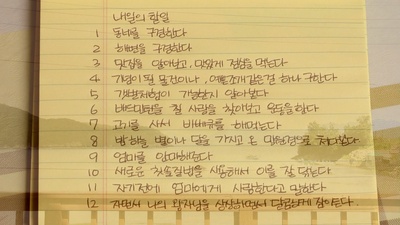 내일의 할일
1 동네를 구경한다
2 해변을 구경한다
3 맛집을 알아보고, 맛있게 점심을 먹는다
4 기념이 될 물건이나, 예쁜조개같은걸 하나 구한다
5 갯벌체험이 가능한지 알아본다
6 배드민턴을 칠 사람을 찾아보고 운동을한다
7 고기를 사서 바베큐를 해먹는다
8 밤하늘 별이나 달을 가지고 온 망원경으로 쳐다본다
9 엄마를 안마해준다
10 새로운 칫솔질법을 시용해서 이를 잘 닦는다
11 자기전에 엄마에게 사랑한다고 말한다
12 자면서 나의 왕자님을 상상하면서 달콤하게 잠이든다.